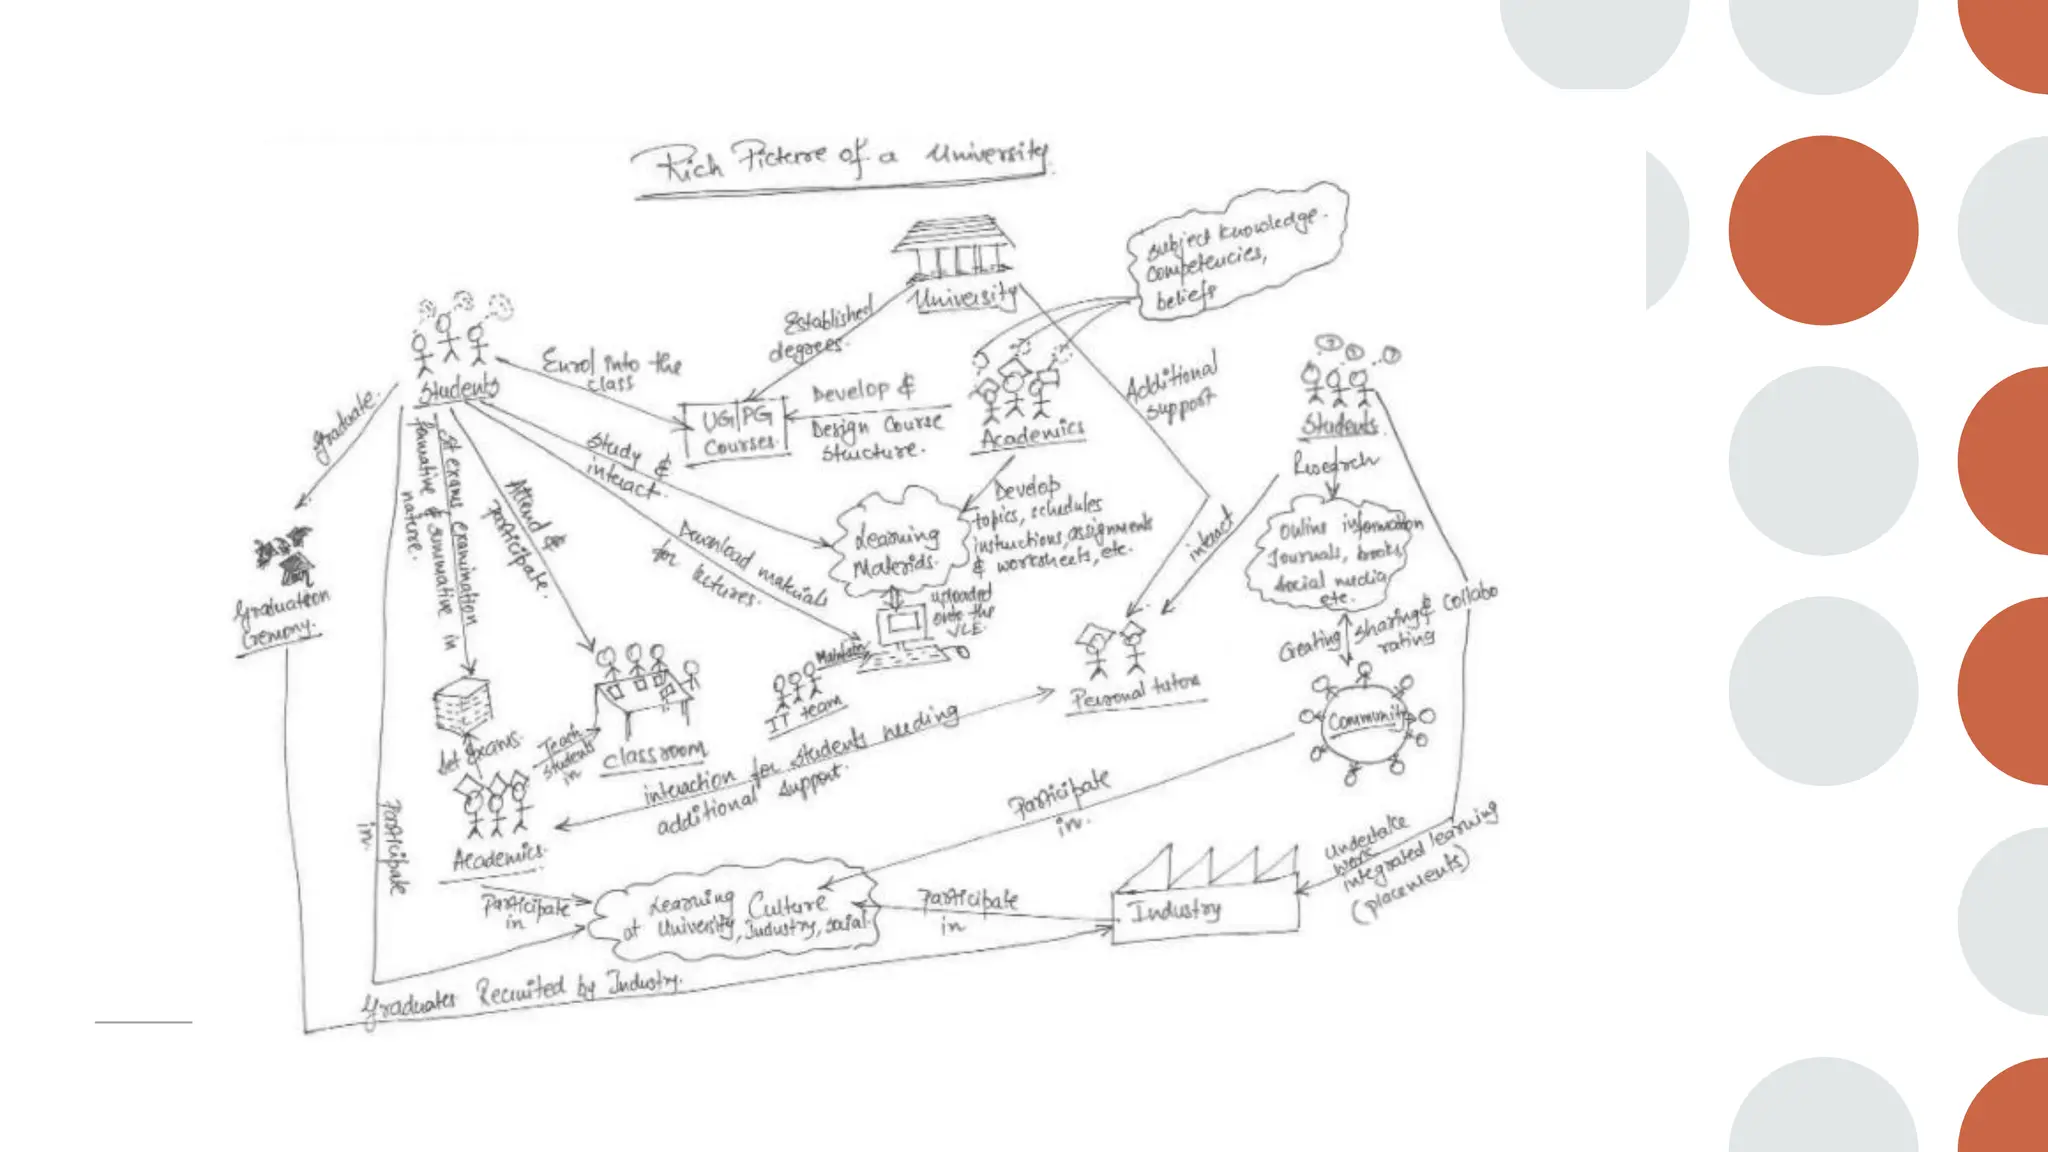 Rich Picture of a University
University
Subject knowledge.
competencies,
beliefs
Established
degrees.
Students
Enrol into the
class
UG/PG
Courses.
Develop &
Design Course
Structure.
Academics
Additional
support
Students
Graduate.
Study &
interact.
Attend &
participate.
formative & summative in
nature.
Download materials
for lectures.
Learning
Materials.
Develop
topics, schedules
instructions, assignments
& worksheets, etc.
uploaded
onto the
VLE.
Research
interact
Online information
Journals, books,
social media
etc.
Creating
sharing &
rating
Collabo
Graduation
Cremony.
Maintain
IT team
Personal tutor
Community
Set exams.
Teach
students
in
Classroom
interaction for students needing
additional support.
Academics.
Participate
in.
Participate
in.
Participate
in
Learning Culture
at University, Industry, social.
Participate
in
Industry
Undertake
work
integrated learning
(placements)
Graduates Recruited by Industry.